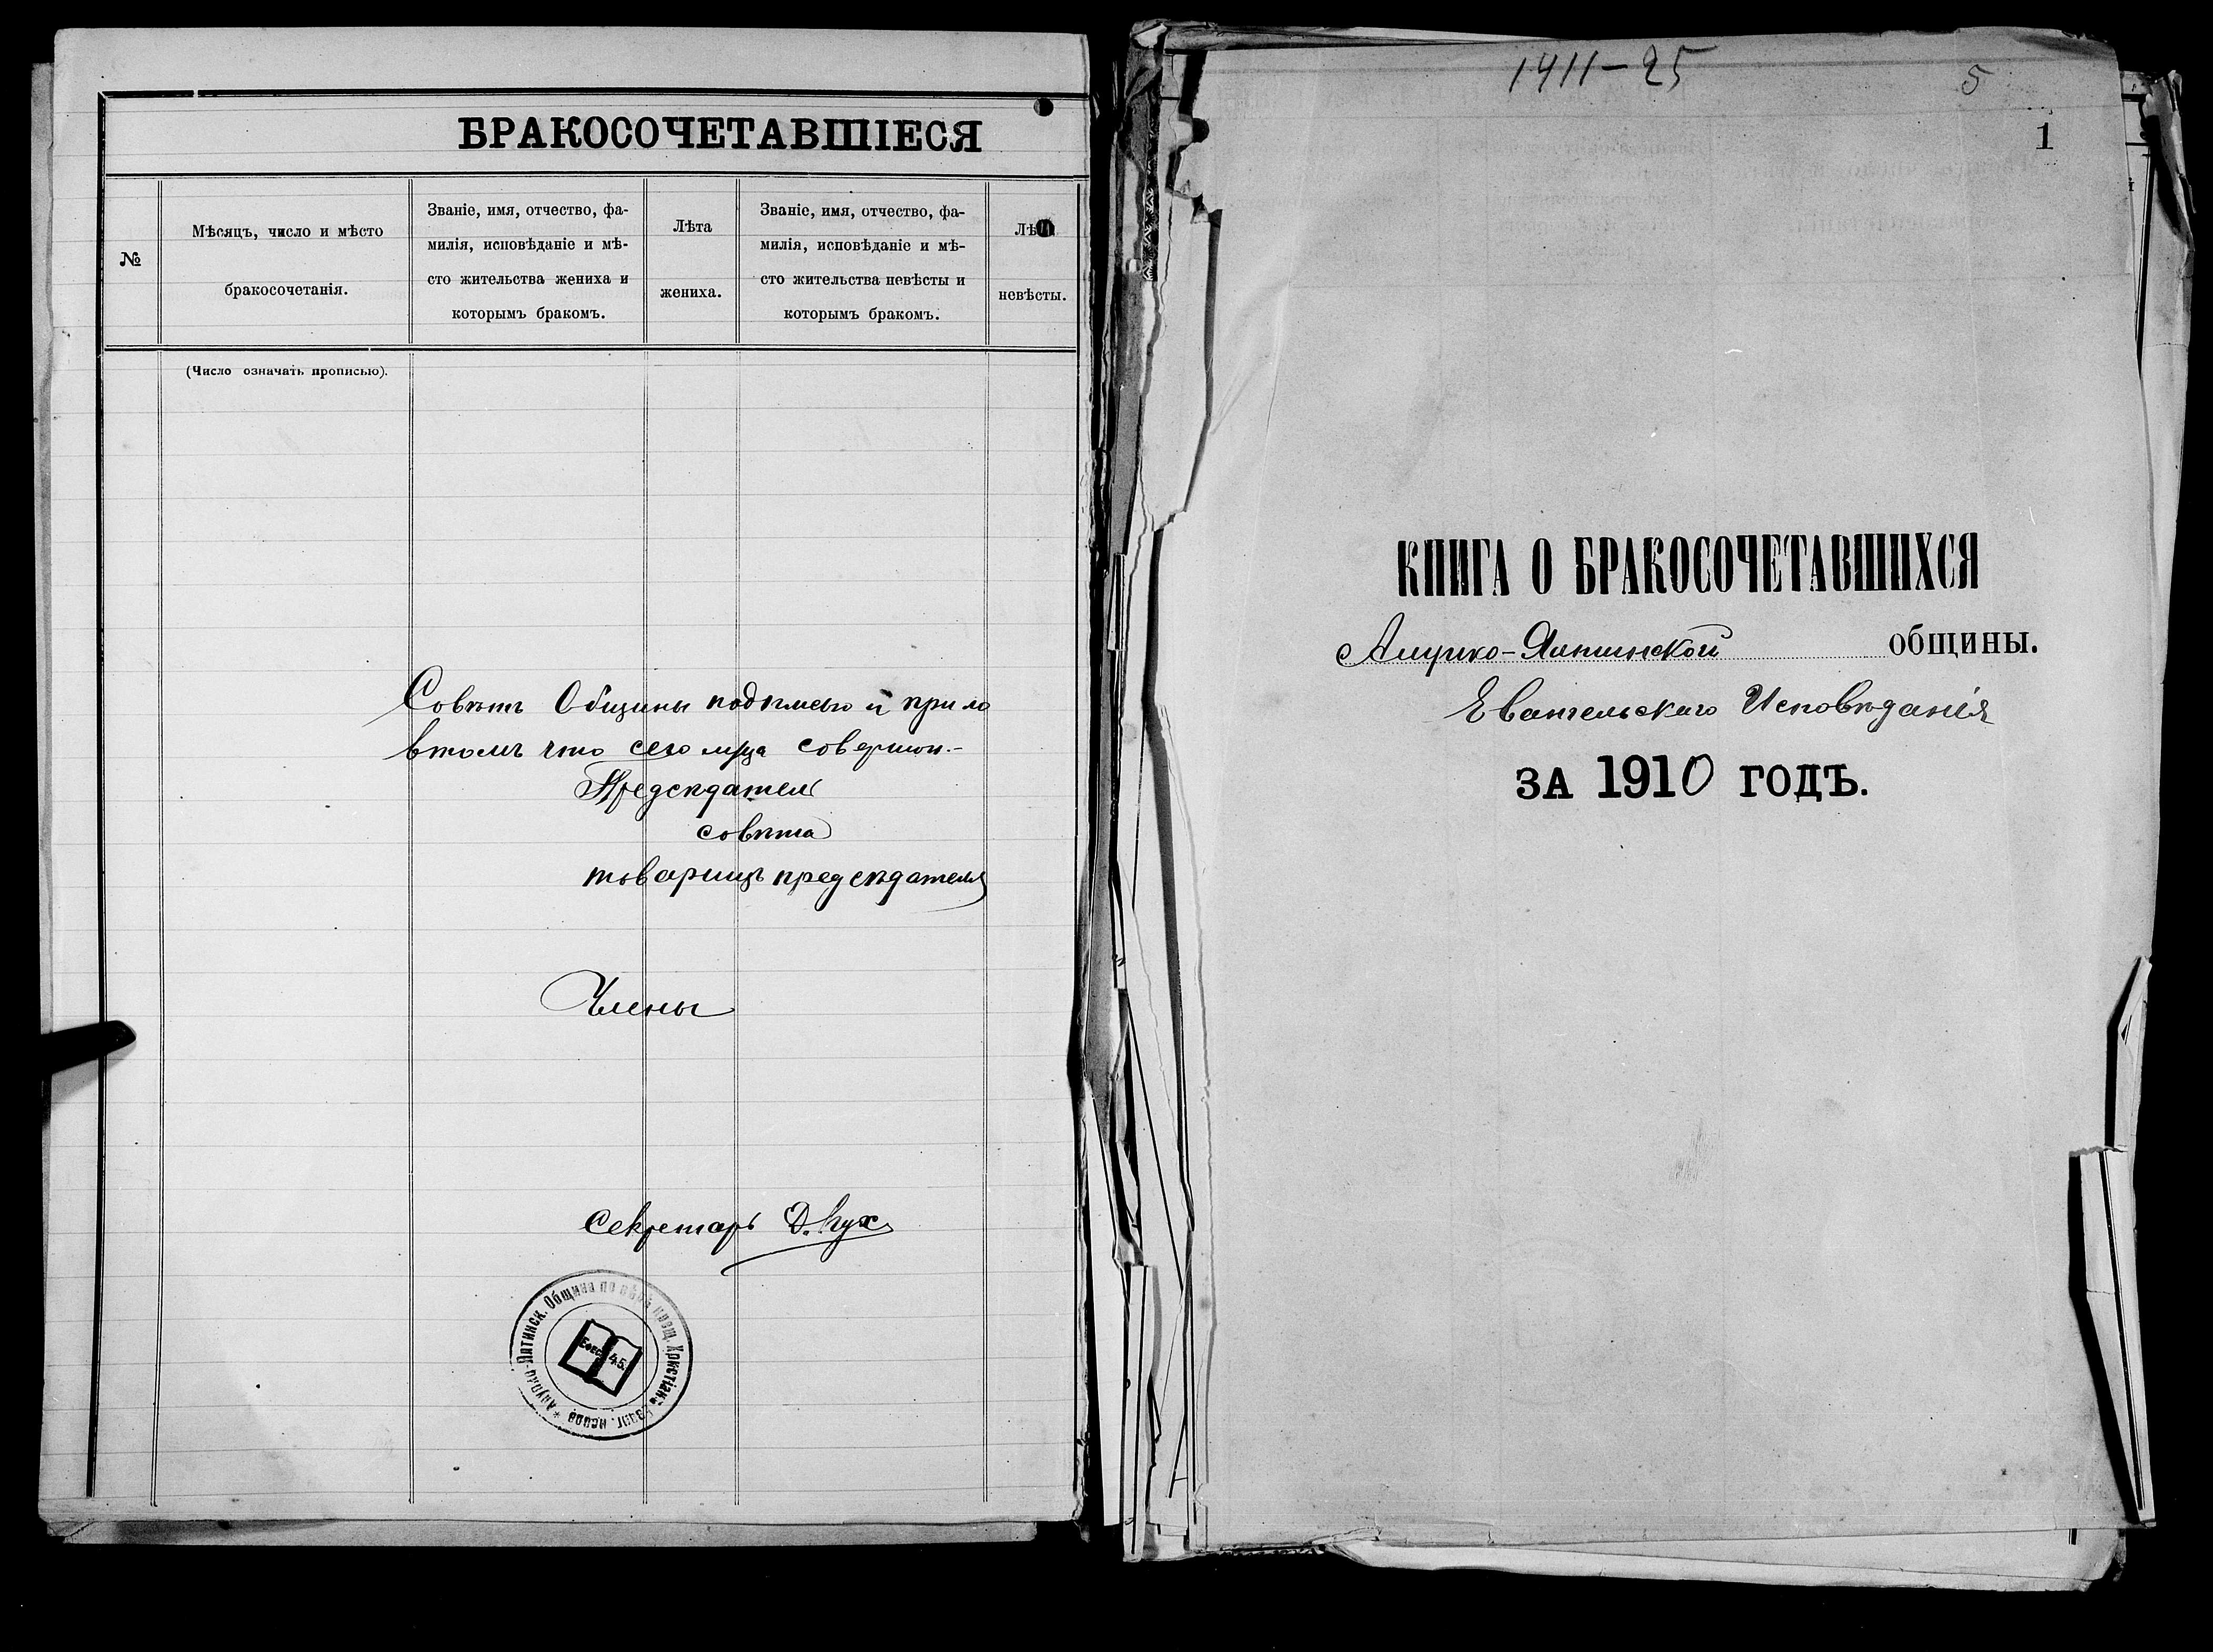 БРАКОСОЧЕТАВШІЕСЯ
№
Мѣсяцъ, число и мѣсто
бракосочетанія.
Званіе, имя, отчество, фа-
милія, исповѣданіе и мѣ-
сто жительства жениха и
которымъ бракомъ.
Лѣта
жениха.
Званіе, имя, отчество, фа-
милія, исповѣданіе и мѣ-
сто жительства невѣсты и
которымъ бракомъ.
невѣсты.
(Число означать прописью).
Совѣтъ Общины подписью и прило
втомъ что сего мца совершон.-
Предсѣдатель
совѣта
товарищъ предсѣдателя
Члены
Секретарь
Община по вѣрѣ крещ. Христіанъ
Ефес. 4.5.
1411-25
5
1
КНИГА О БРАКОСОЧЕТАВШИХСЯ
общины.
Евангельскаго Исповѣданія
ЗА 1910 ГОДЪ.